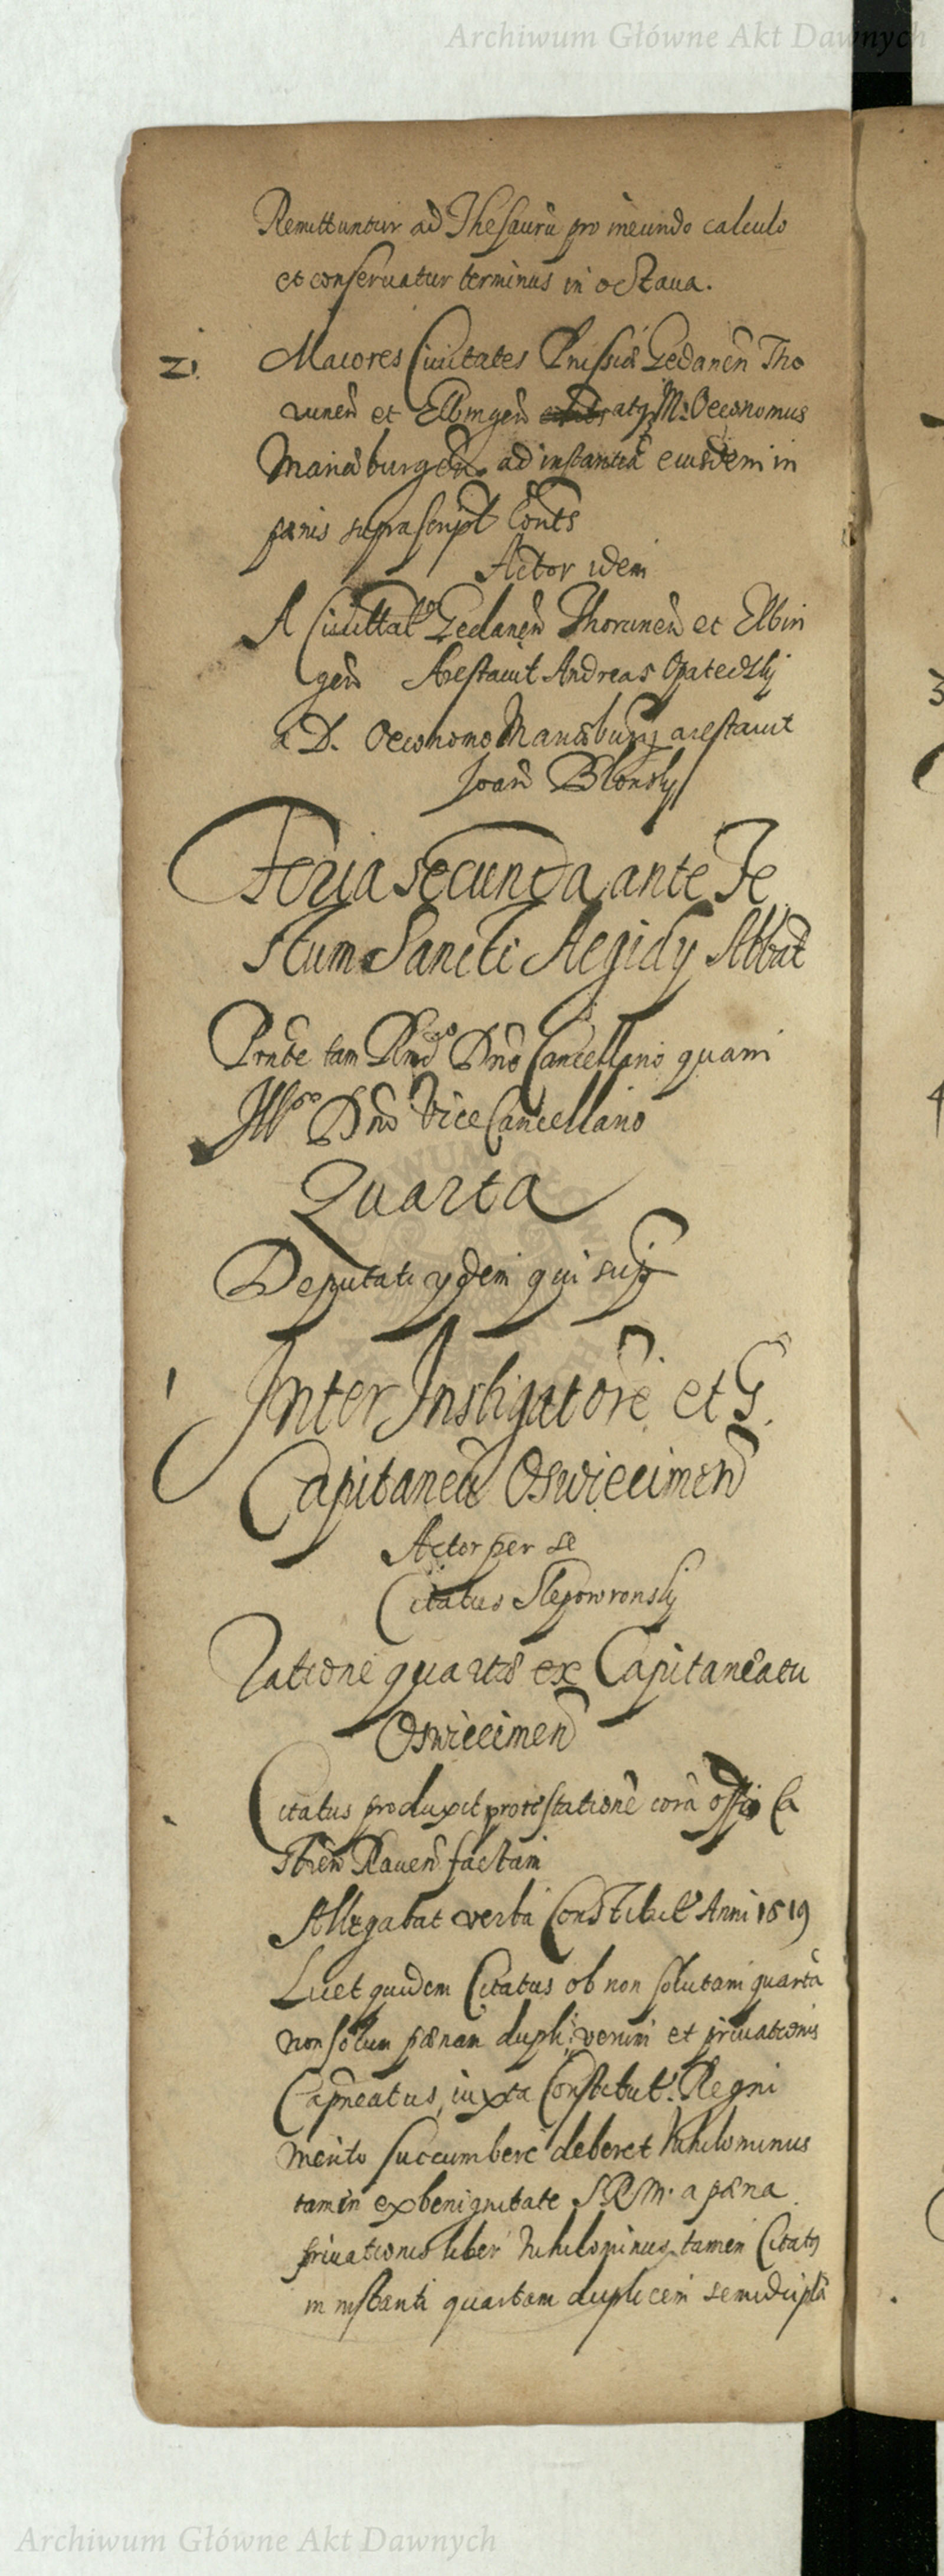 Archiwum Główne Akt Dawnych
Remittuntur ad Thesaurũ pro ineundo calculo
et conseruatur terminus in octaua.
2. Maiores Ciuitates Prussiæ Gedanen̄ Tho
runen̄ et Elbingen̄ atq3 M. Oeconomus
Mariæburgen̄. ad instantiã eiusdem in
pænis suprascript Conts
Actor idem
A Ciuittat Gedanen̄ Thorunen̄ et Elbin
gen̄ Arestauit Andreas Opateczky
a D. Oeconomo Mariæburg arestauit
Joan̄ Blonsky
Feria secunda ante Fe
stum Sancti Aegidy Abbat
Prnte tam Rnd̄o Dn̄o Cancellario quam
Illro Dn̄o Vice Cancellario
Quarta
Deputati ydem qui sup
1 Inter Instigatorẽ et G.
Capitaneũ Oswiecimen̄
Actor per se
Citatus Slepowronsky
Ratione quartæ ex Capitaneatu
Oswiecimen̄
Citatus produxit protestationẽ corã offo Ca
stren̄ Rauen̄ factam
Allegabat verba Constitut Anni 1519
Luet quidem Citatus ob non solutam quartã
non solum pænam dupli, verum et priuationis
Capneatus, iuxta Constitut. Regni
merito succumbere deberet Nihilominus
tamen ex benignitate S.R.M. a pæna
priuationis liber Nihilominus tamen Citatq
in instanti quartam duplicem semiduplã
Archiwum Główne Akt Dawnych